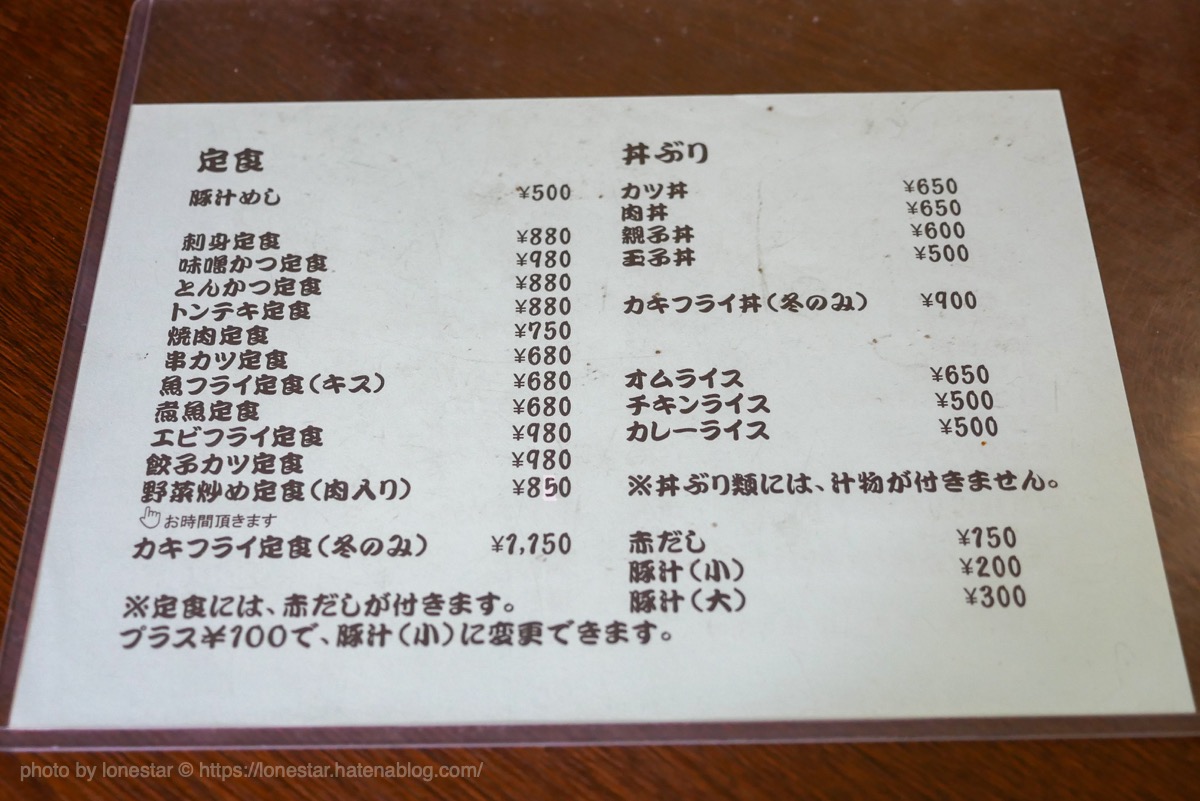 定食
豚汁めし ¥500
刺身定食 ¥880
味噌かつ定食 ¥980
とんかつ定食 ¥880
トンテキ定食 ¥880
焼肉定食 ¥750
串カツ定食 ¥680
魚フライ定食(キス) ¥680
煮魚定食 ¥680
エビフライ定食 ¥980
餃子カツ定食 ¥980
野菜炒め定食(肉入り) ¥850
お時間頂きます
カキフライ定食(冬のみ) ¥1,150
※定食には、赤だしが付きます。
プラス¥100で、豚汁(小)に変更できます。
丼ぶり
カツ丼 ¥650
肉丼 ¥650
親子丼 ¥600
玉子丼 ¥500
カキフライ丼(冬のみ) ¥900
オムライス ¥650
チキンライス ¥500
カレーライス ¥500
※丼ぶり類には、汁物が付きません。
赤だし ¥150
豚汁(小) ¥200
豚汁(大) ¥300
photo by lonestar © https://lonestar.hatenablog.com/